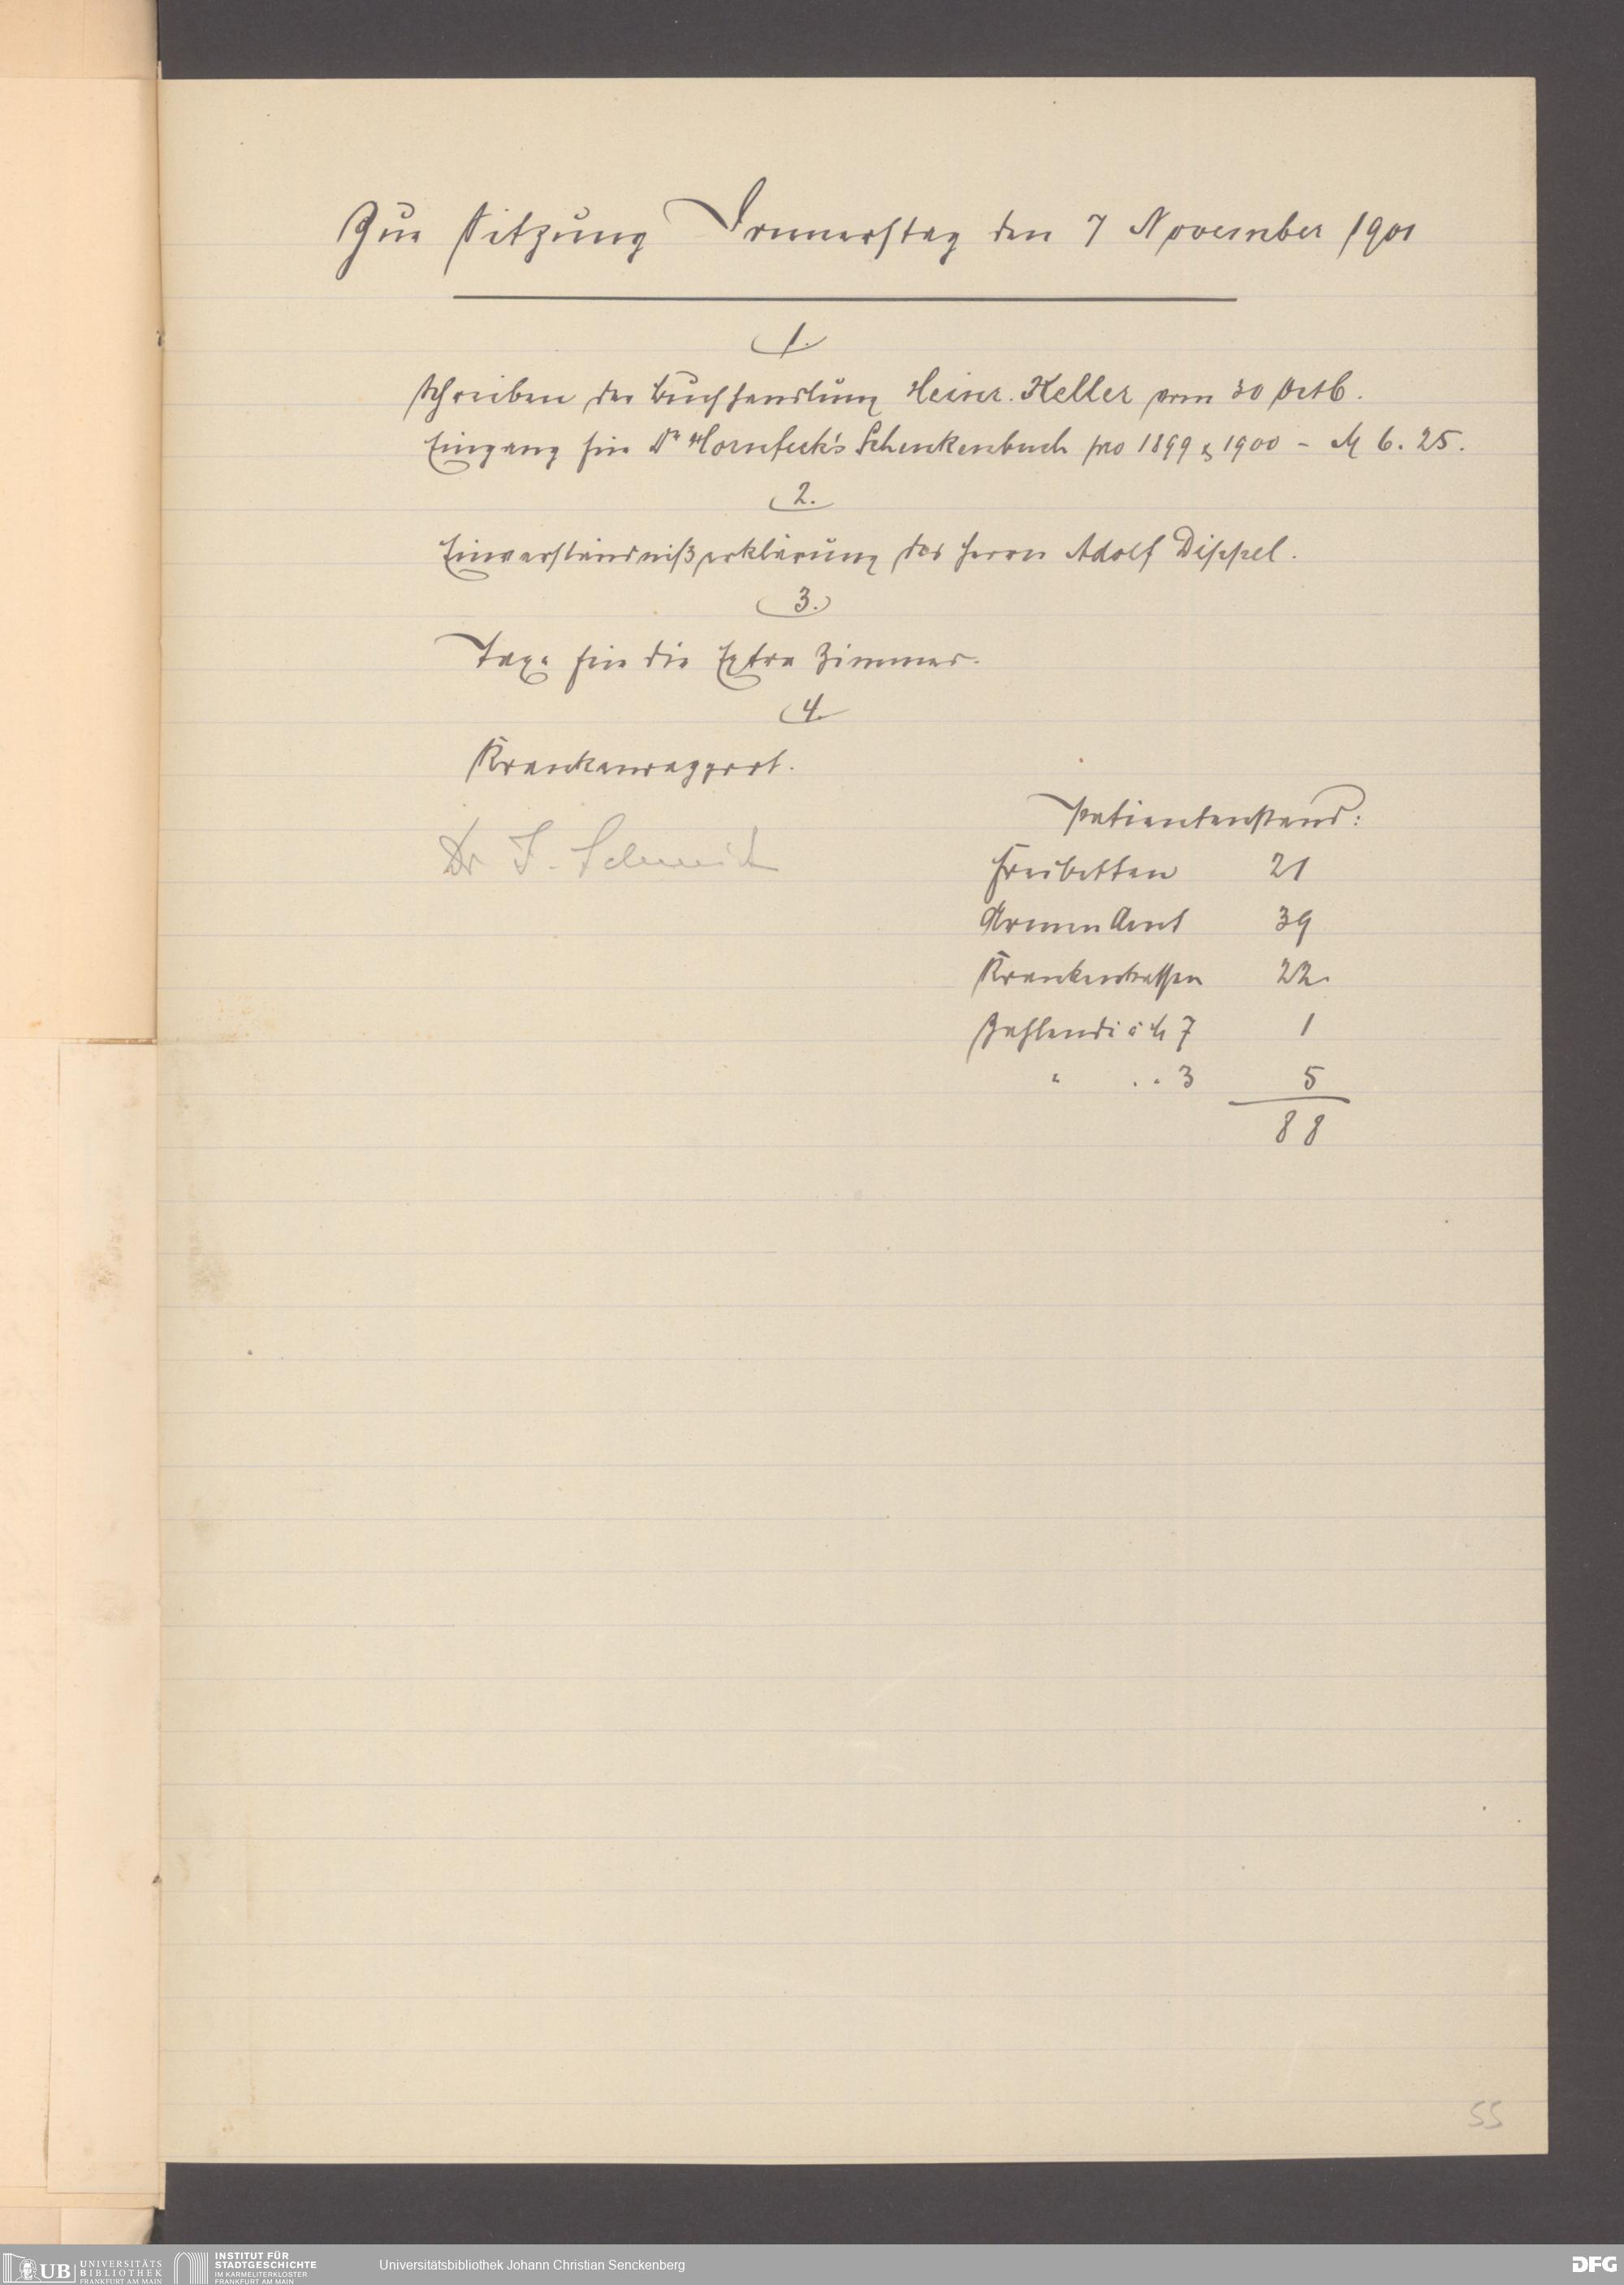 Zur Sitzung Donnerstag den 7 November 1901
1.
Schreiben der Buchhandlung Heinr. Keller vom 30 Octb.
Eingang für Dr Hornfeck's Schenkenbuch pro 1899 & 1900 - M 6. 25.
2.
Einverständnißerklärung des Herrn Adolf Dippel.
3.
Taxe für die Extra Zimmer.
4.
Krankenrapport.
Patientenstand:
Dr J. Schmidt
Freibetten 21
Armen Amt 39
Krankenkassen 22
Zahlende à M 7 1
" " " 3 5
88
55
UB UNIVERSITÄTS BIBLIOTHEK FRANKFURT AM MAIN
INSTITUT FÜR STADTGESCHICHTE IM KARMELITERKLOSTER FRANKFURT AM MAIN
Universitätsbibliothek Johann Christian Senckenberg
DFG